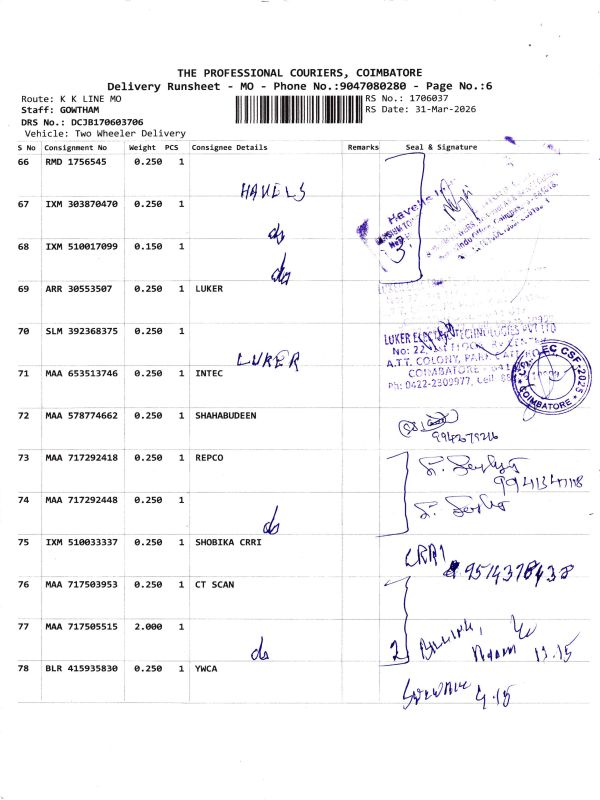 THE PROFESSIONAL COURIERS, COIMBATORE
Delivery Runsheet - MO - Phone No.:9047080280 - Page No.:6
Route: K K LINE MO
RS No.: 1706037
Staff: GOWTHAM
RS Date: 31-Mar-2026
DRS No.: DCJB170603706
Vehicle: Two Wheeler Delivery
S No Consignment No Weight PCS Consignee Details Remarks Seal & Signature
66 RMD 1756545 0.250 1
HAVELS
67 IXM 303870470 0.250 1
do
68 IXM 510017099 0.150 1
do
69 ARR 30553507 0.250 1 LUKER
70 SLM 392368375 0.250 1
LUKER
LUKER ELECTRIC TECHNOLOGIES PVT LTD
No: 22,
A.T.T. COLONY,
COIMBATORE
Ph: 0422-2309977, Cell:
COIMBATORE
71 MAA 653513746 0.250 1 INTEC
72 MAA 578774662 0.250 1 SHAHABUDEEN
9942679216
73 MAA 717292418 0.250 1 REPCO
74 MAA 717292448 0.250 1
do
75 IXM 510033337 0.250 1 SHOBIKA CRRI
CRRI
9514378438
76 MAA 717503953 0.250 1 CT SCAN
77 MAA 717505515 2.000 1
do
2
13.15
78 BLR 415935830 0.250 1 YWCA
4.15